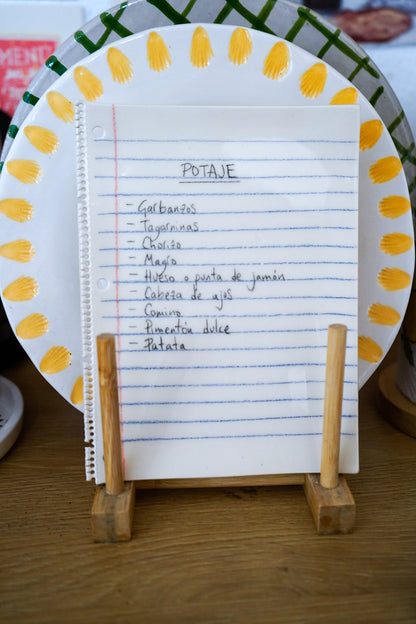 MENT
POTAJE
- Garbanzos
- Tagarninas
- Chorizo
- Magro
- Hueso o punta de jamón
- Cabeza de ajos
- Comino
- Pimentón dulce
- Patata